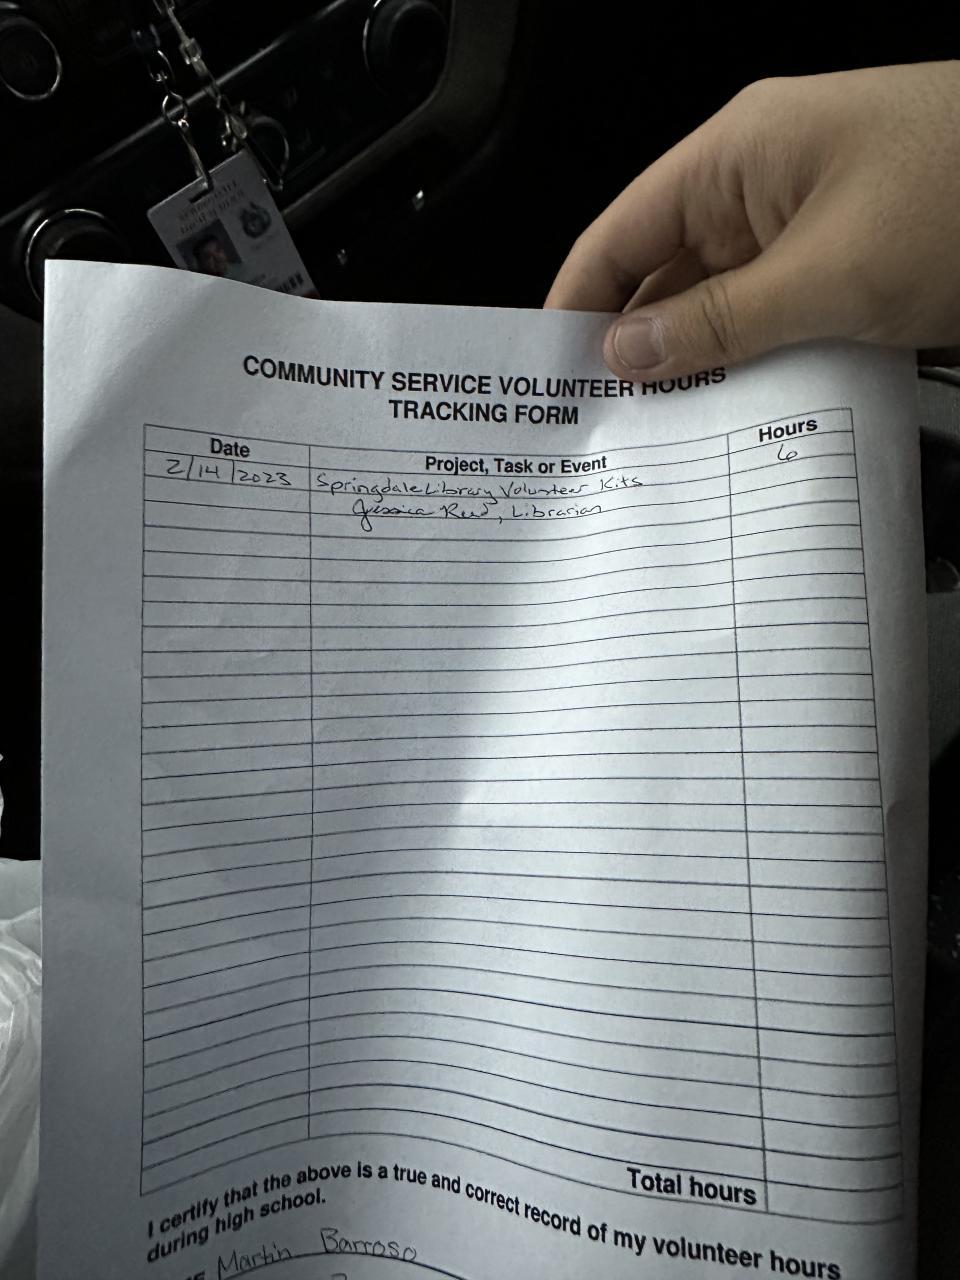 COMMUNITY SERVICE VOLUNTEER HOURS
TRACKING FORM
Date
Project, Task or Event
Hours
2/14/2023
Springdale Library Volunteer Kits
6
Jessica Reed, Librarian
Total hours
I certify that the above is a true and correct record of my volunteer hours
during high school.
Martin Barroso